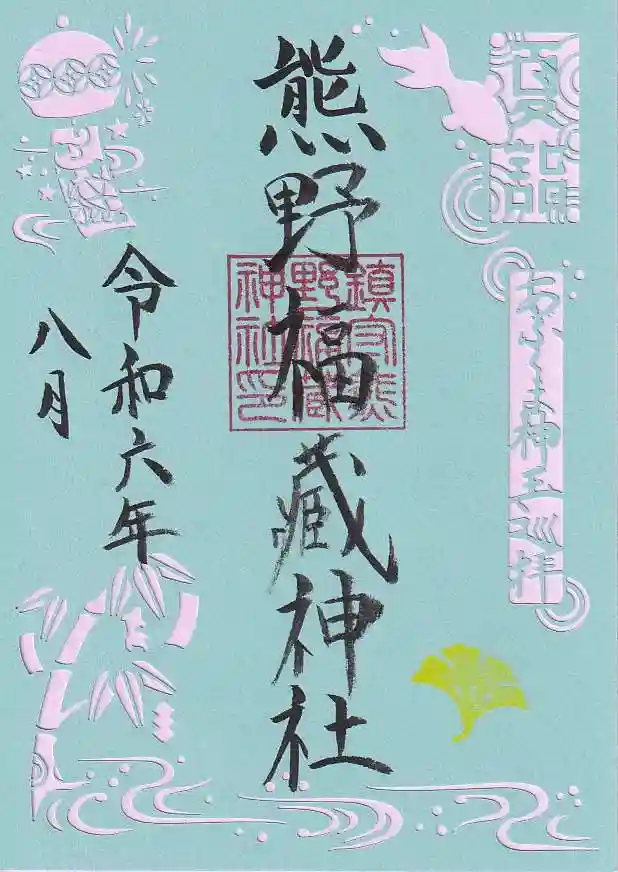 神玉巡拝
熊野福藏神社
鎮守熊
野福蔵
神社印
令和六年
八月